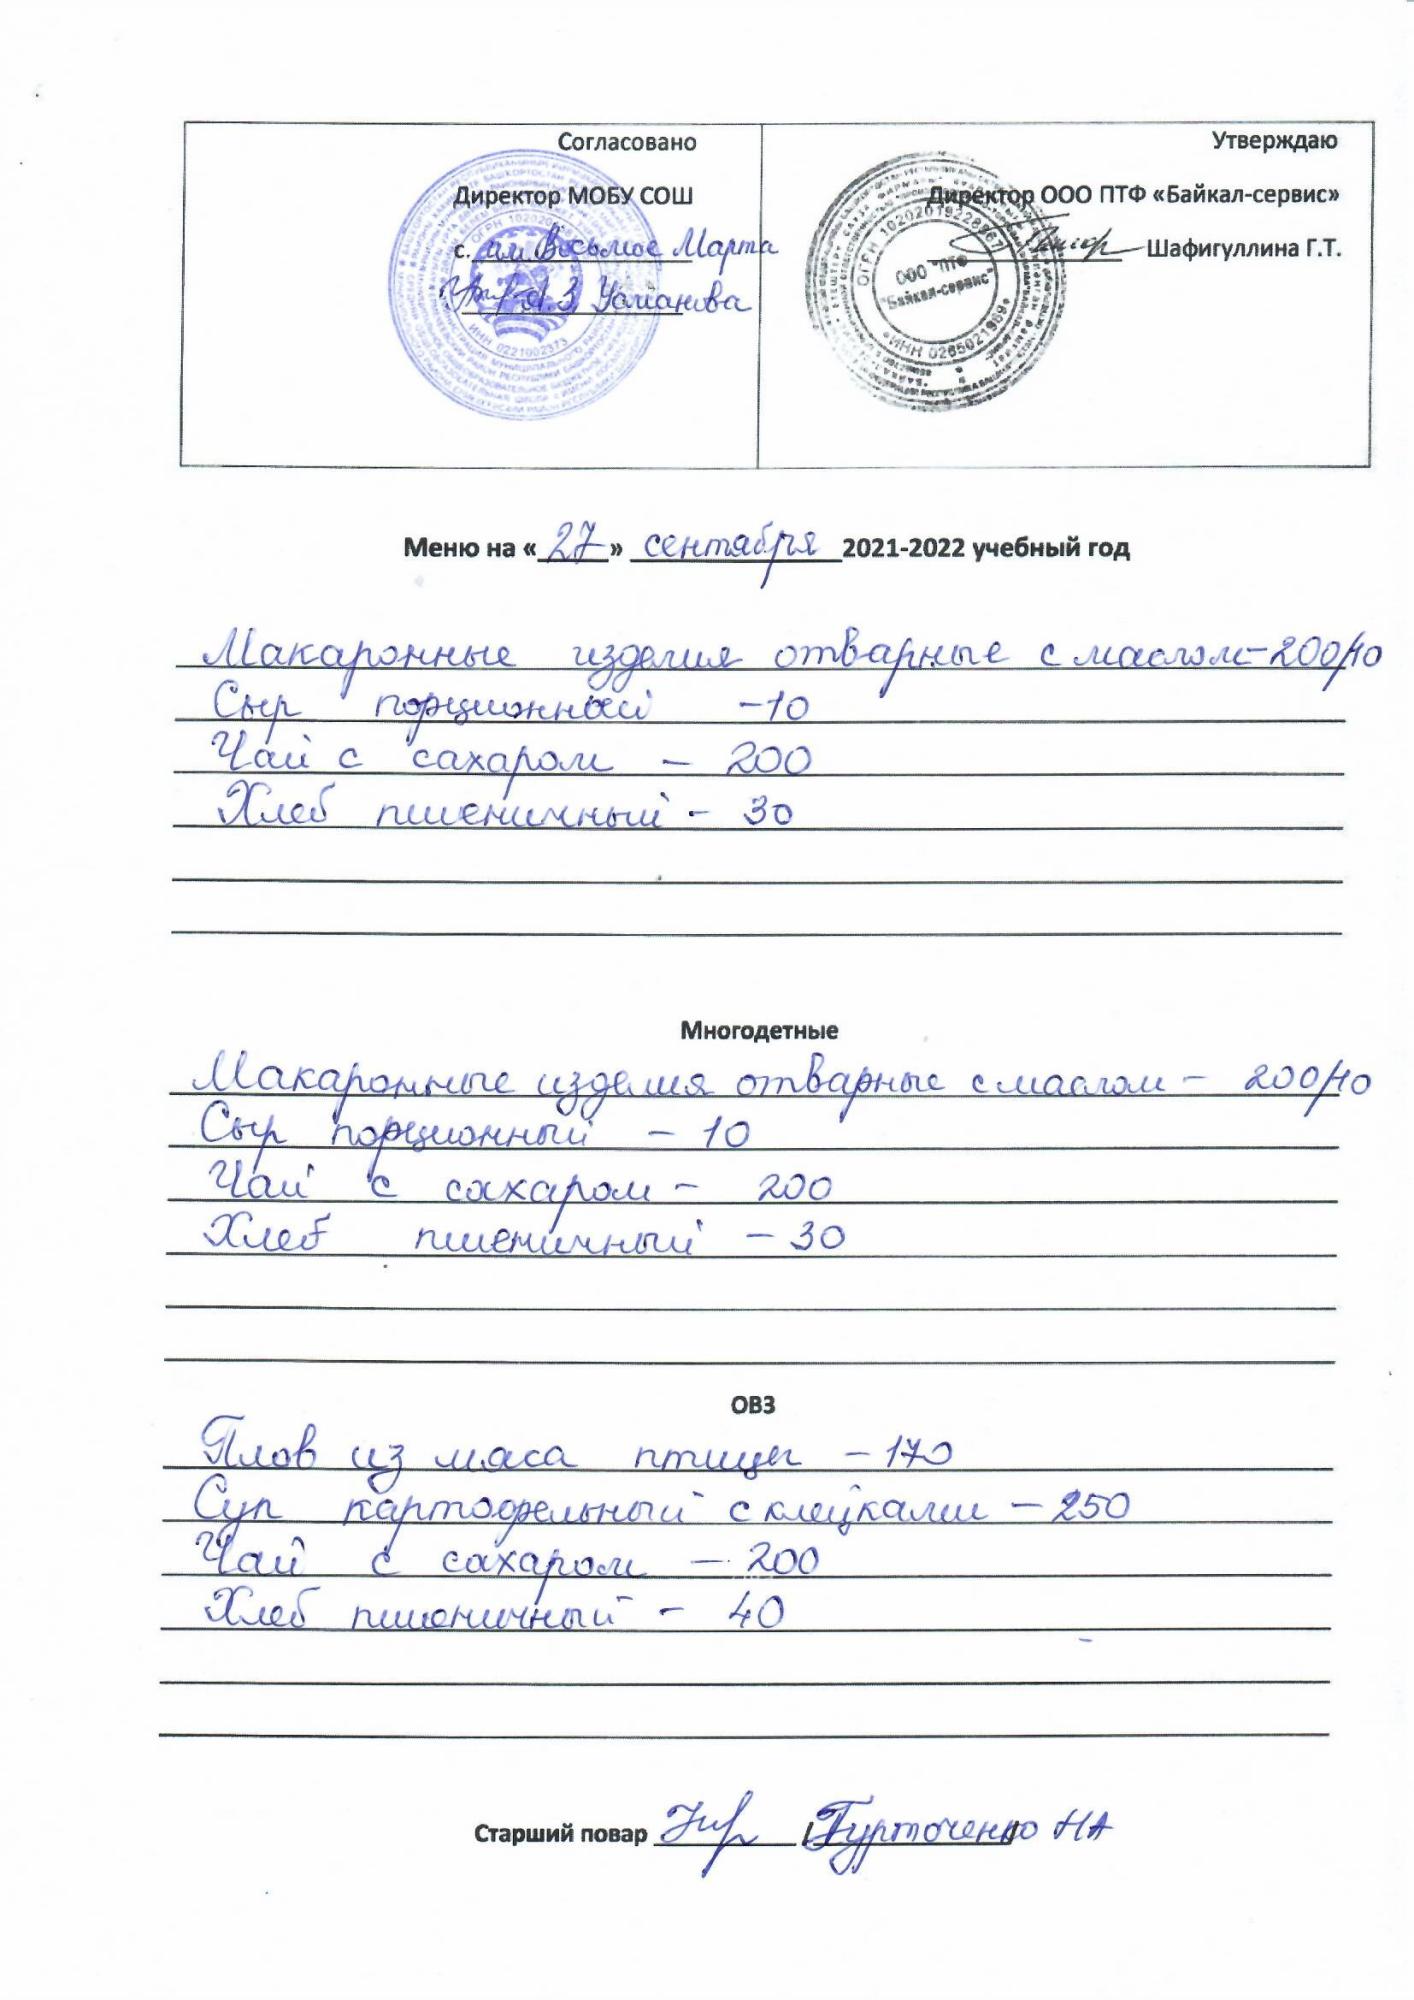 Согласовано
Директор МОБУ СОШ
с. им Восьмое Марта
А.З. Усманова
Утверждаю
Директор ООО ПТФ «Байкал-сервис»
Шафигуллина Г.Т.
ОГРН 1020201922896
ООО "ПТФ
"Байкал-сервис"
ИНН 0265021969
ИНН 0221002373
Меню на «27» сентября 2021-2022 учебный год
Макаронные изделия отварные с маслом-200/10
Сыр порционный -10
Чай с сахаром - 200
Хлеб пшеничный - 30
Многодетные
Макаронные изделия отварные с маслом - 200/10
Сыр порционный - 10
Чай с сахаром - 200
Хлеб пшеничный - 30
ОВЗ
Плов из мяса птицы - 170
Суп картофельный с клецками - 250
Чай с сахаром - 200
Хлеб пшеничный - 40
Старший повар / Гурточенко НА